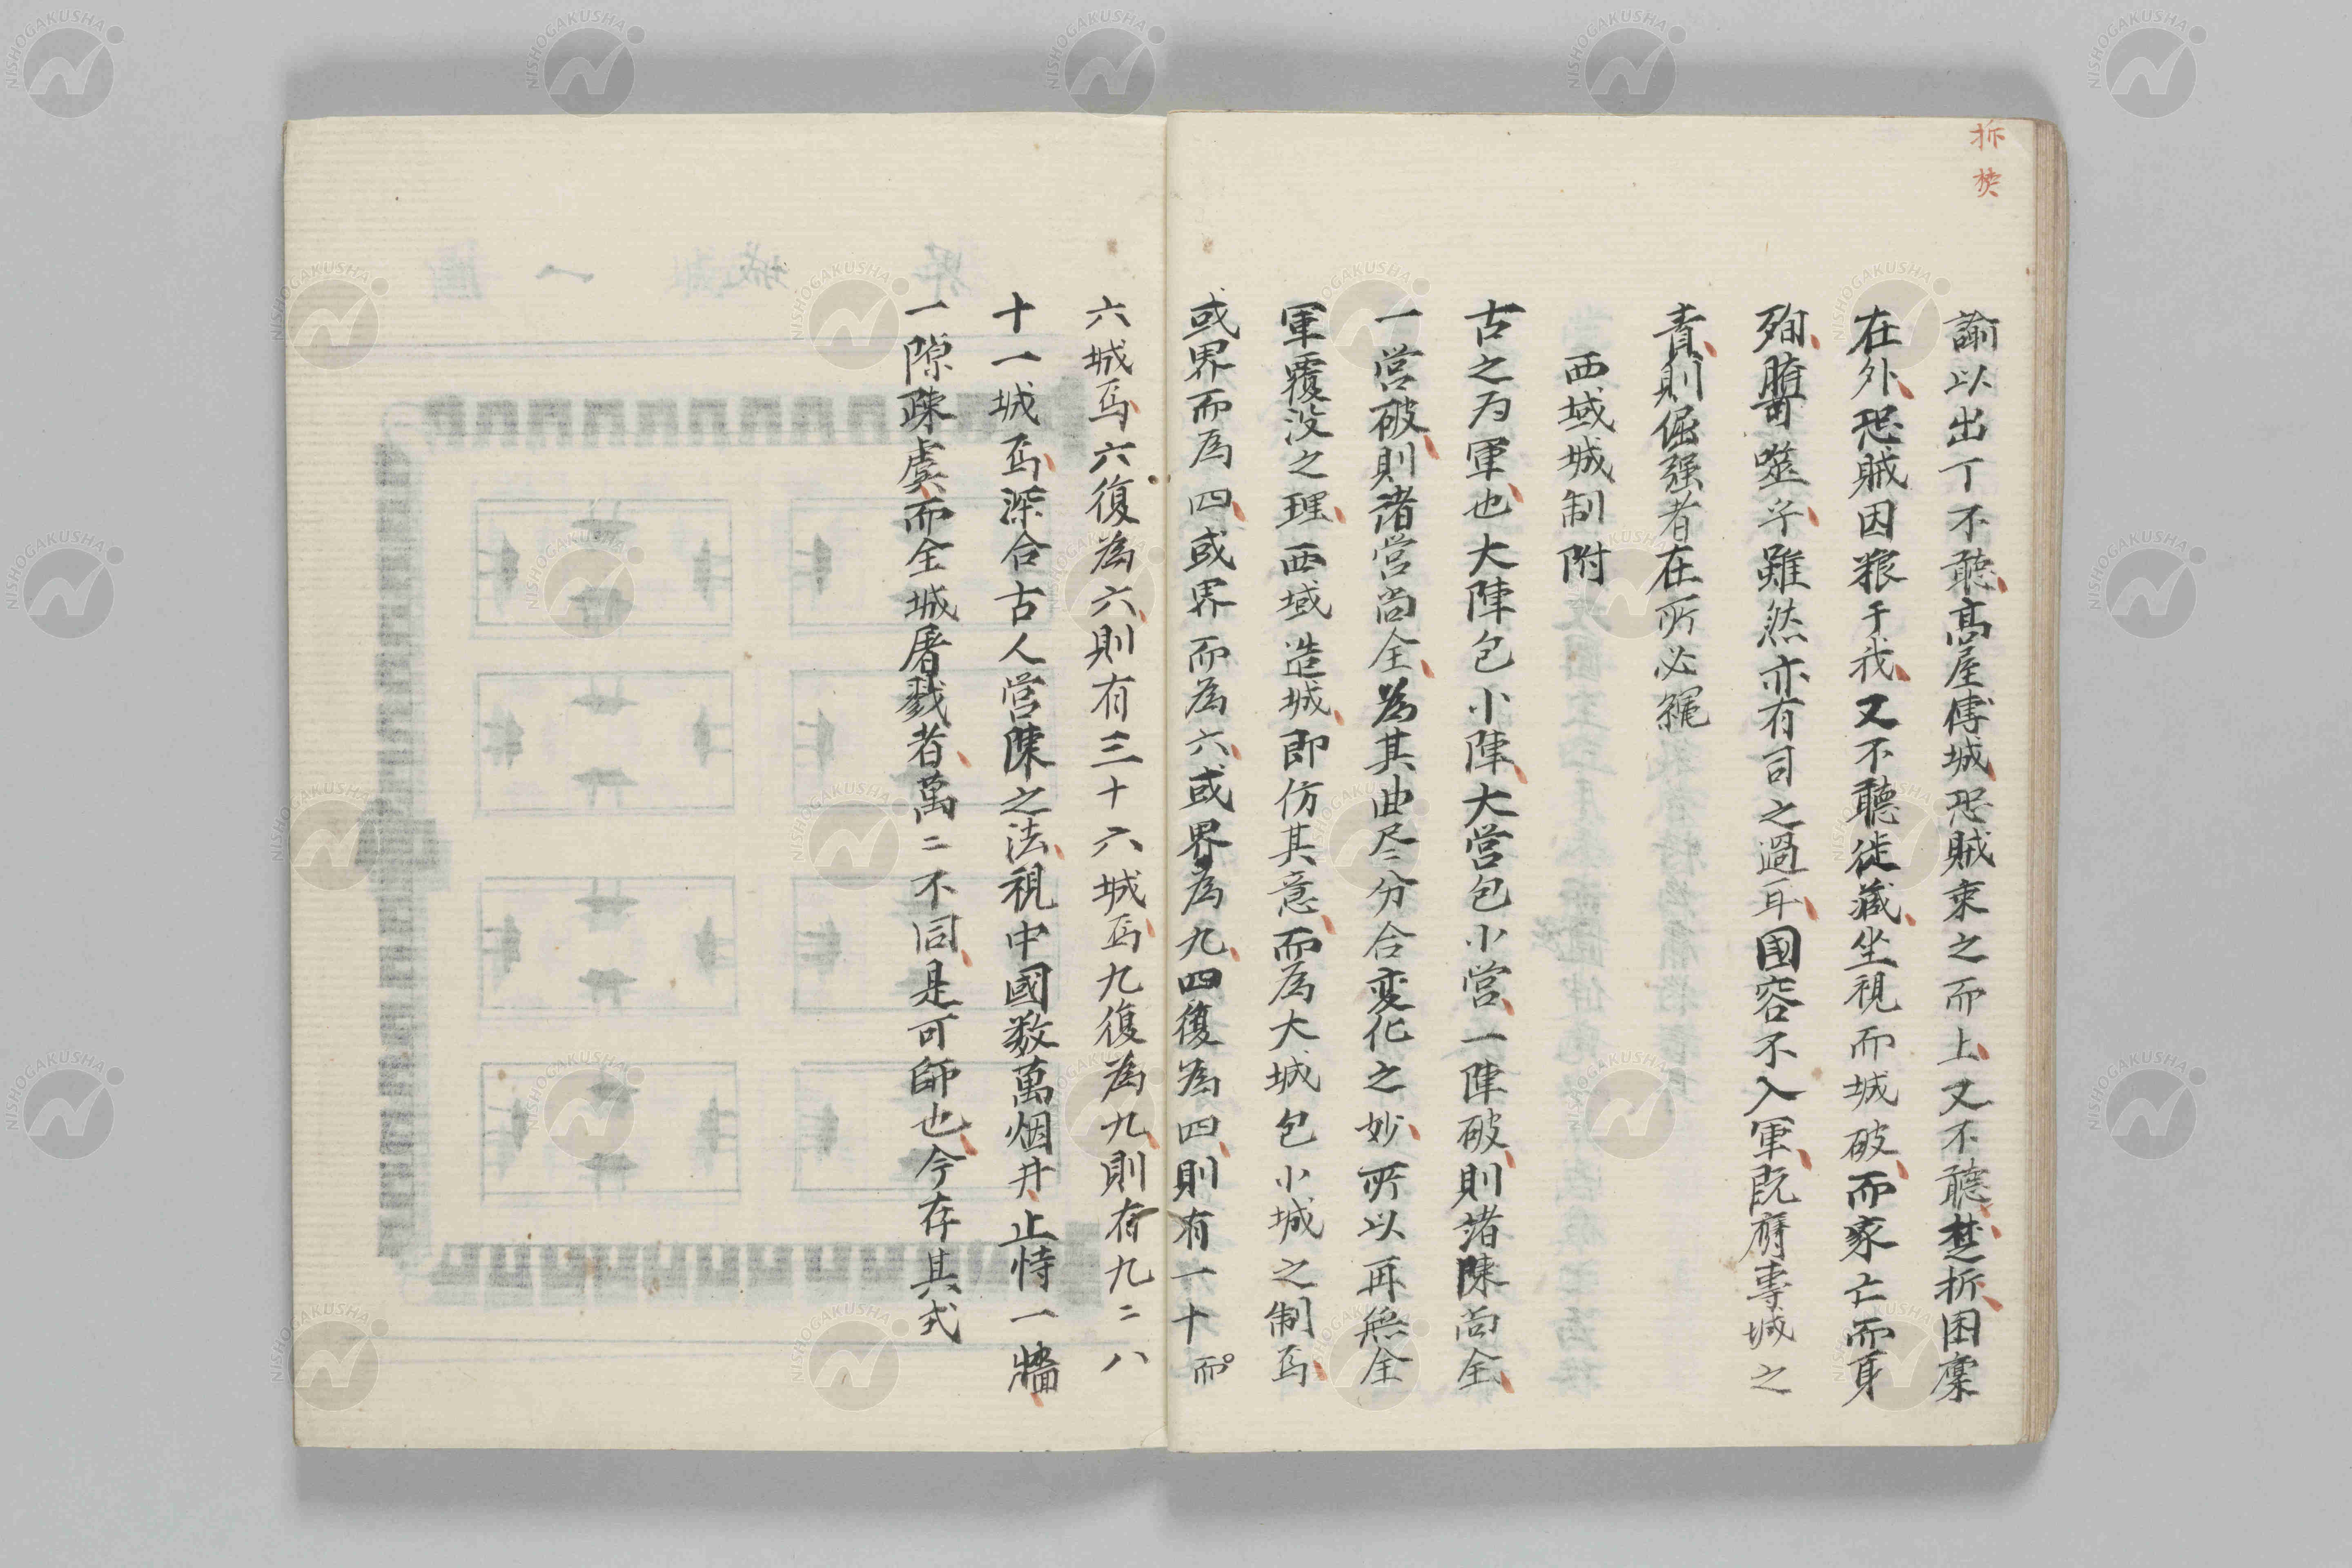 拆
焚
諭以出丁不聽高屋傅城恐賊乗之而上又不聽焚折困稟
在外恐賊因粮于我又不聽徙藏坐視而城破而家亡而身
殉臍噬乎雖然亦有司之過耳國容不入軍既膺專城之
責則倔强者在所必繩
西域城制附
古之为軍也大陣包小陣大営包小営一陣破則諸陳尚全
一営破則諸営尚全為其曲尽分合変化之妙所以再無全
軍覆没之理西域造城即仿其意而為大城包小城之制焉
或界而為四或界而為六或界為九四復為四則有一十而
六城焉六復為六則有三十六城焉九復為九則有九〻八
十一城焉深合古人営陳之法視中國数萬烟井止恃一牆
一隙疎虞而全城屠戮者萬〻不同是可師也今存其式
NISHOGAKUSHA